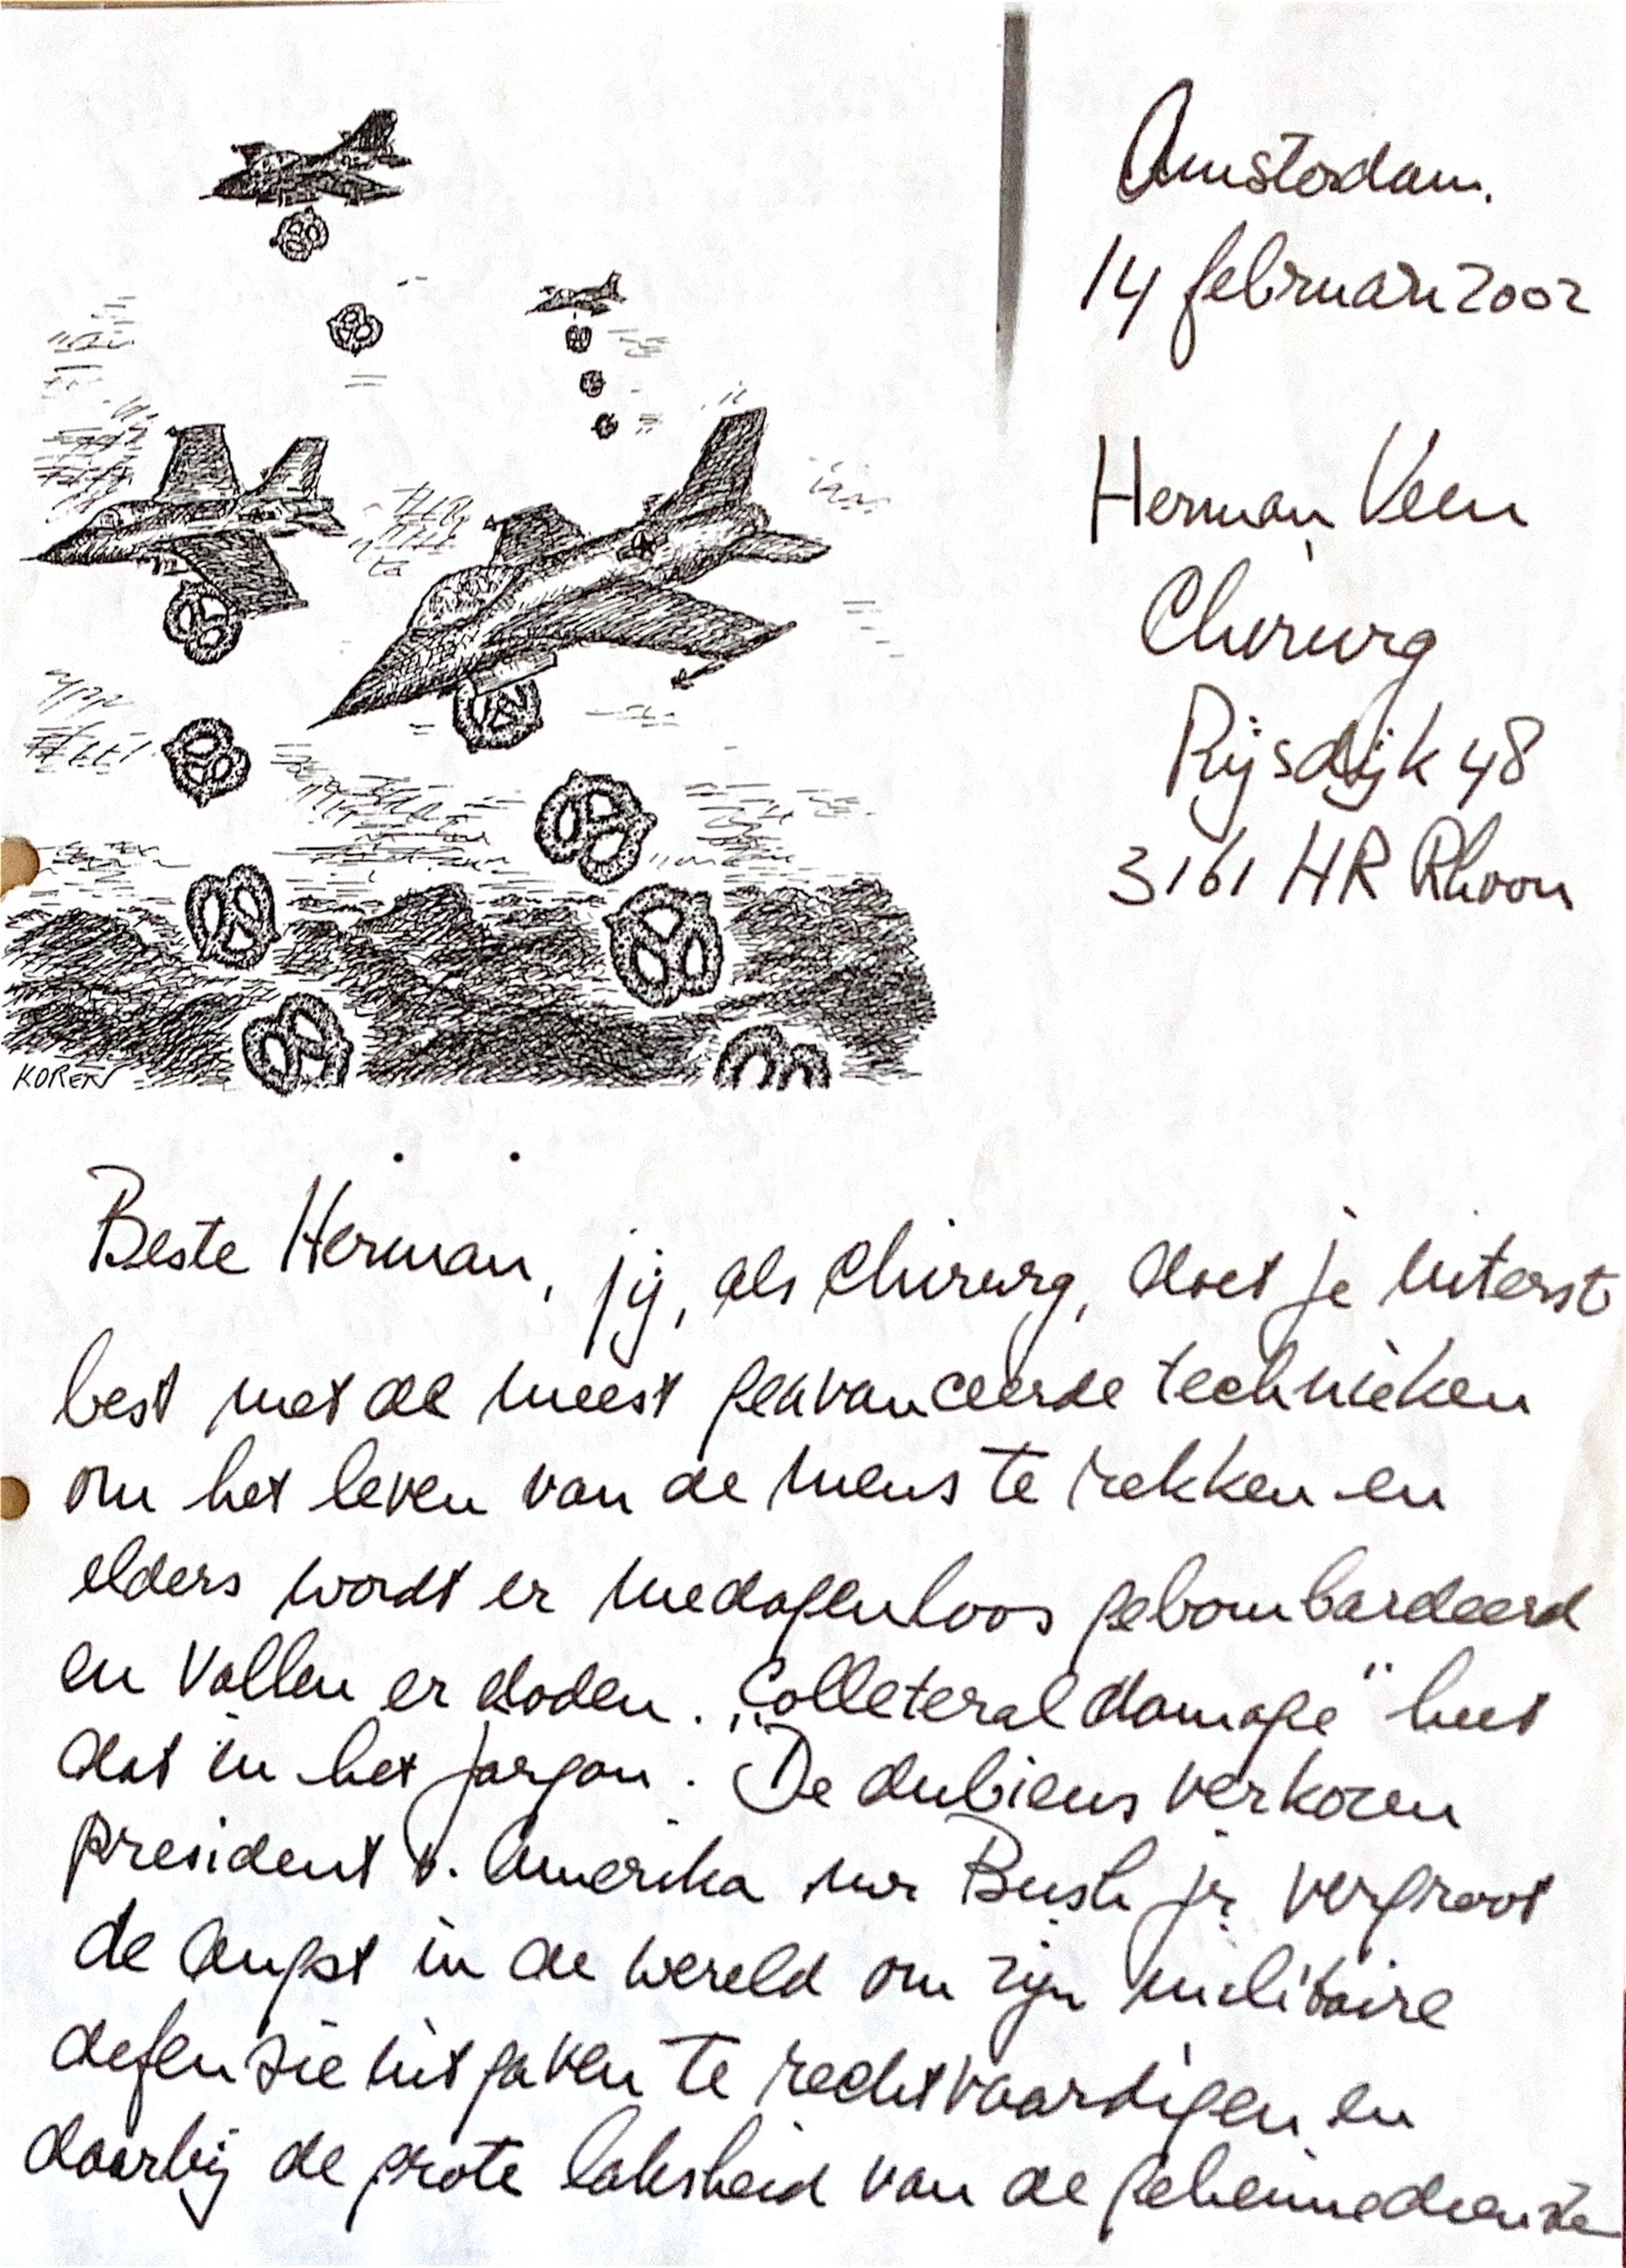 Amsterdam.
14 februari 2002
Herman Veen
Chirurg
Rijsdijk 48
3161 HR Rhoon
KOREN
Beste Herman, jij, als Chirurg, doet je uiterst
best met de meest geavanceerde technieken
om het leven van de mens te rekken en
elders wordt er medogenloos gebombardeerd
en vallen er doden. „Colleteral damage" heet
dat in het jargon. De dubieus verkozen
president v. Amerika mr Bush jr. vergroot
de angst in de wereld om zijn militaire
defensie uitgaven te rechtvaardigen en
daarbij de grote laksheid van de geheimedienste